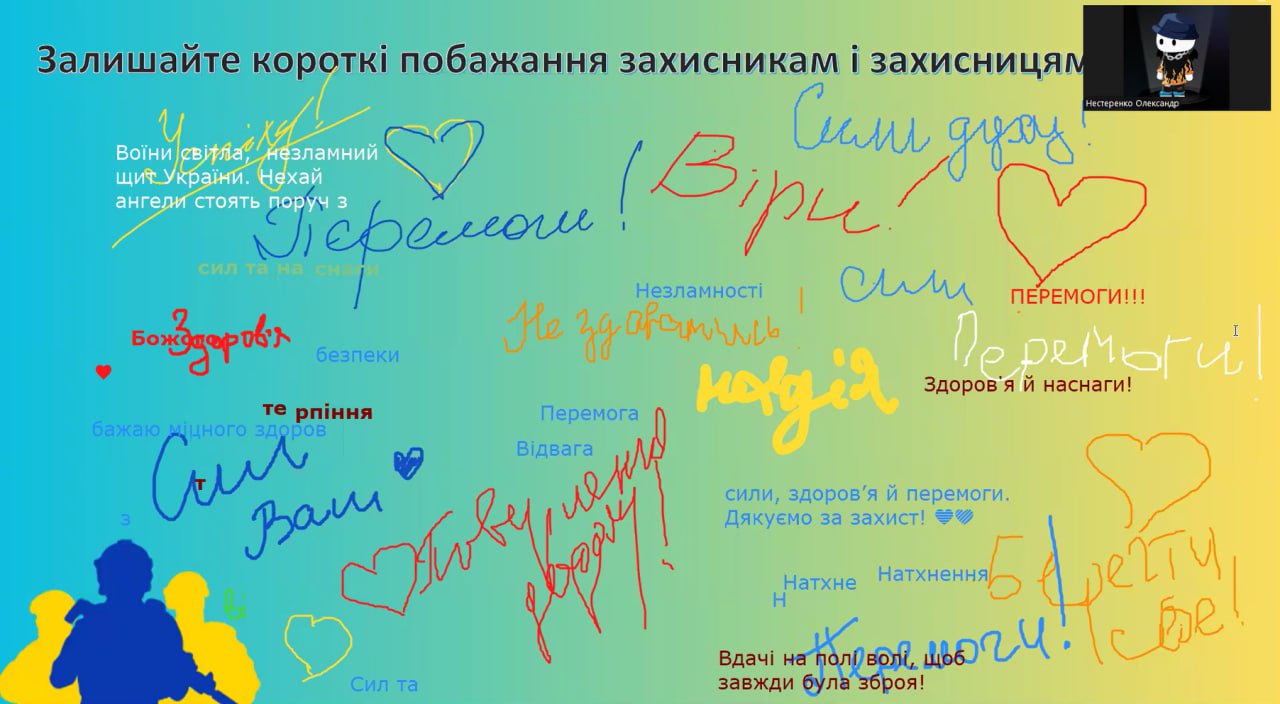 Залишайте короткі побажання захисникам і захисницям
Нестеренко Олександр
Успіху!
Сили духу!
Воїни світла, незламний
щит України. Нехай
ангели стоять поруч з
Віри!
Перемоги!
сил та на снаги
Незламності
сили
ПЕРЕМОГИ!!!
Не здавались!
Перемоги!
Божого
Здоров'я
безпеки
надія
Здоров'я й наснаги!
те рпіння
Перемога
бажаю міцного здоров
Відвага
Сил
Вам
т
з
Повернення
додому!
сили, здоров’я й перемоги.
Дякуємо за захист! 💙💜
Берегти
себе!
Натхнення
Натхне
н
ві
Перемоги!
Вдачі на полі волі, щоб
завжди була зброя!
Сил та